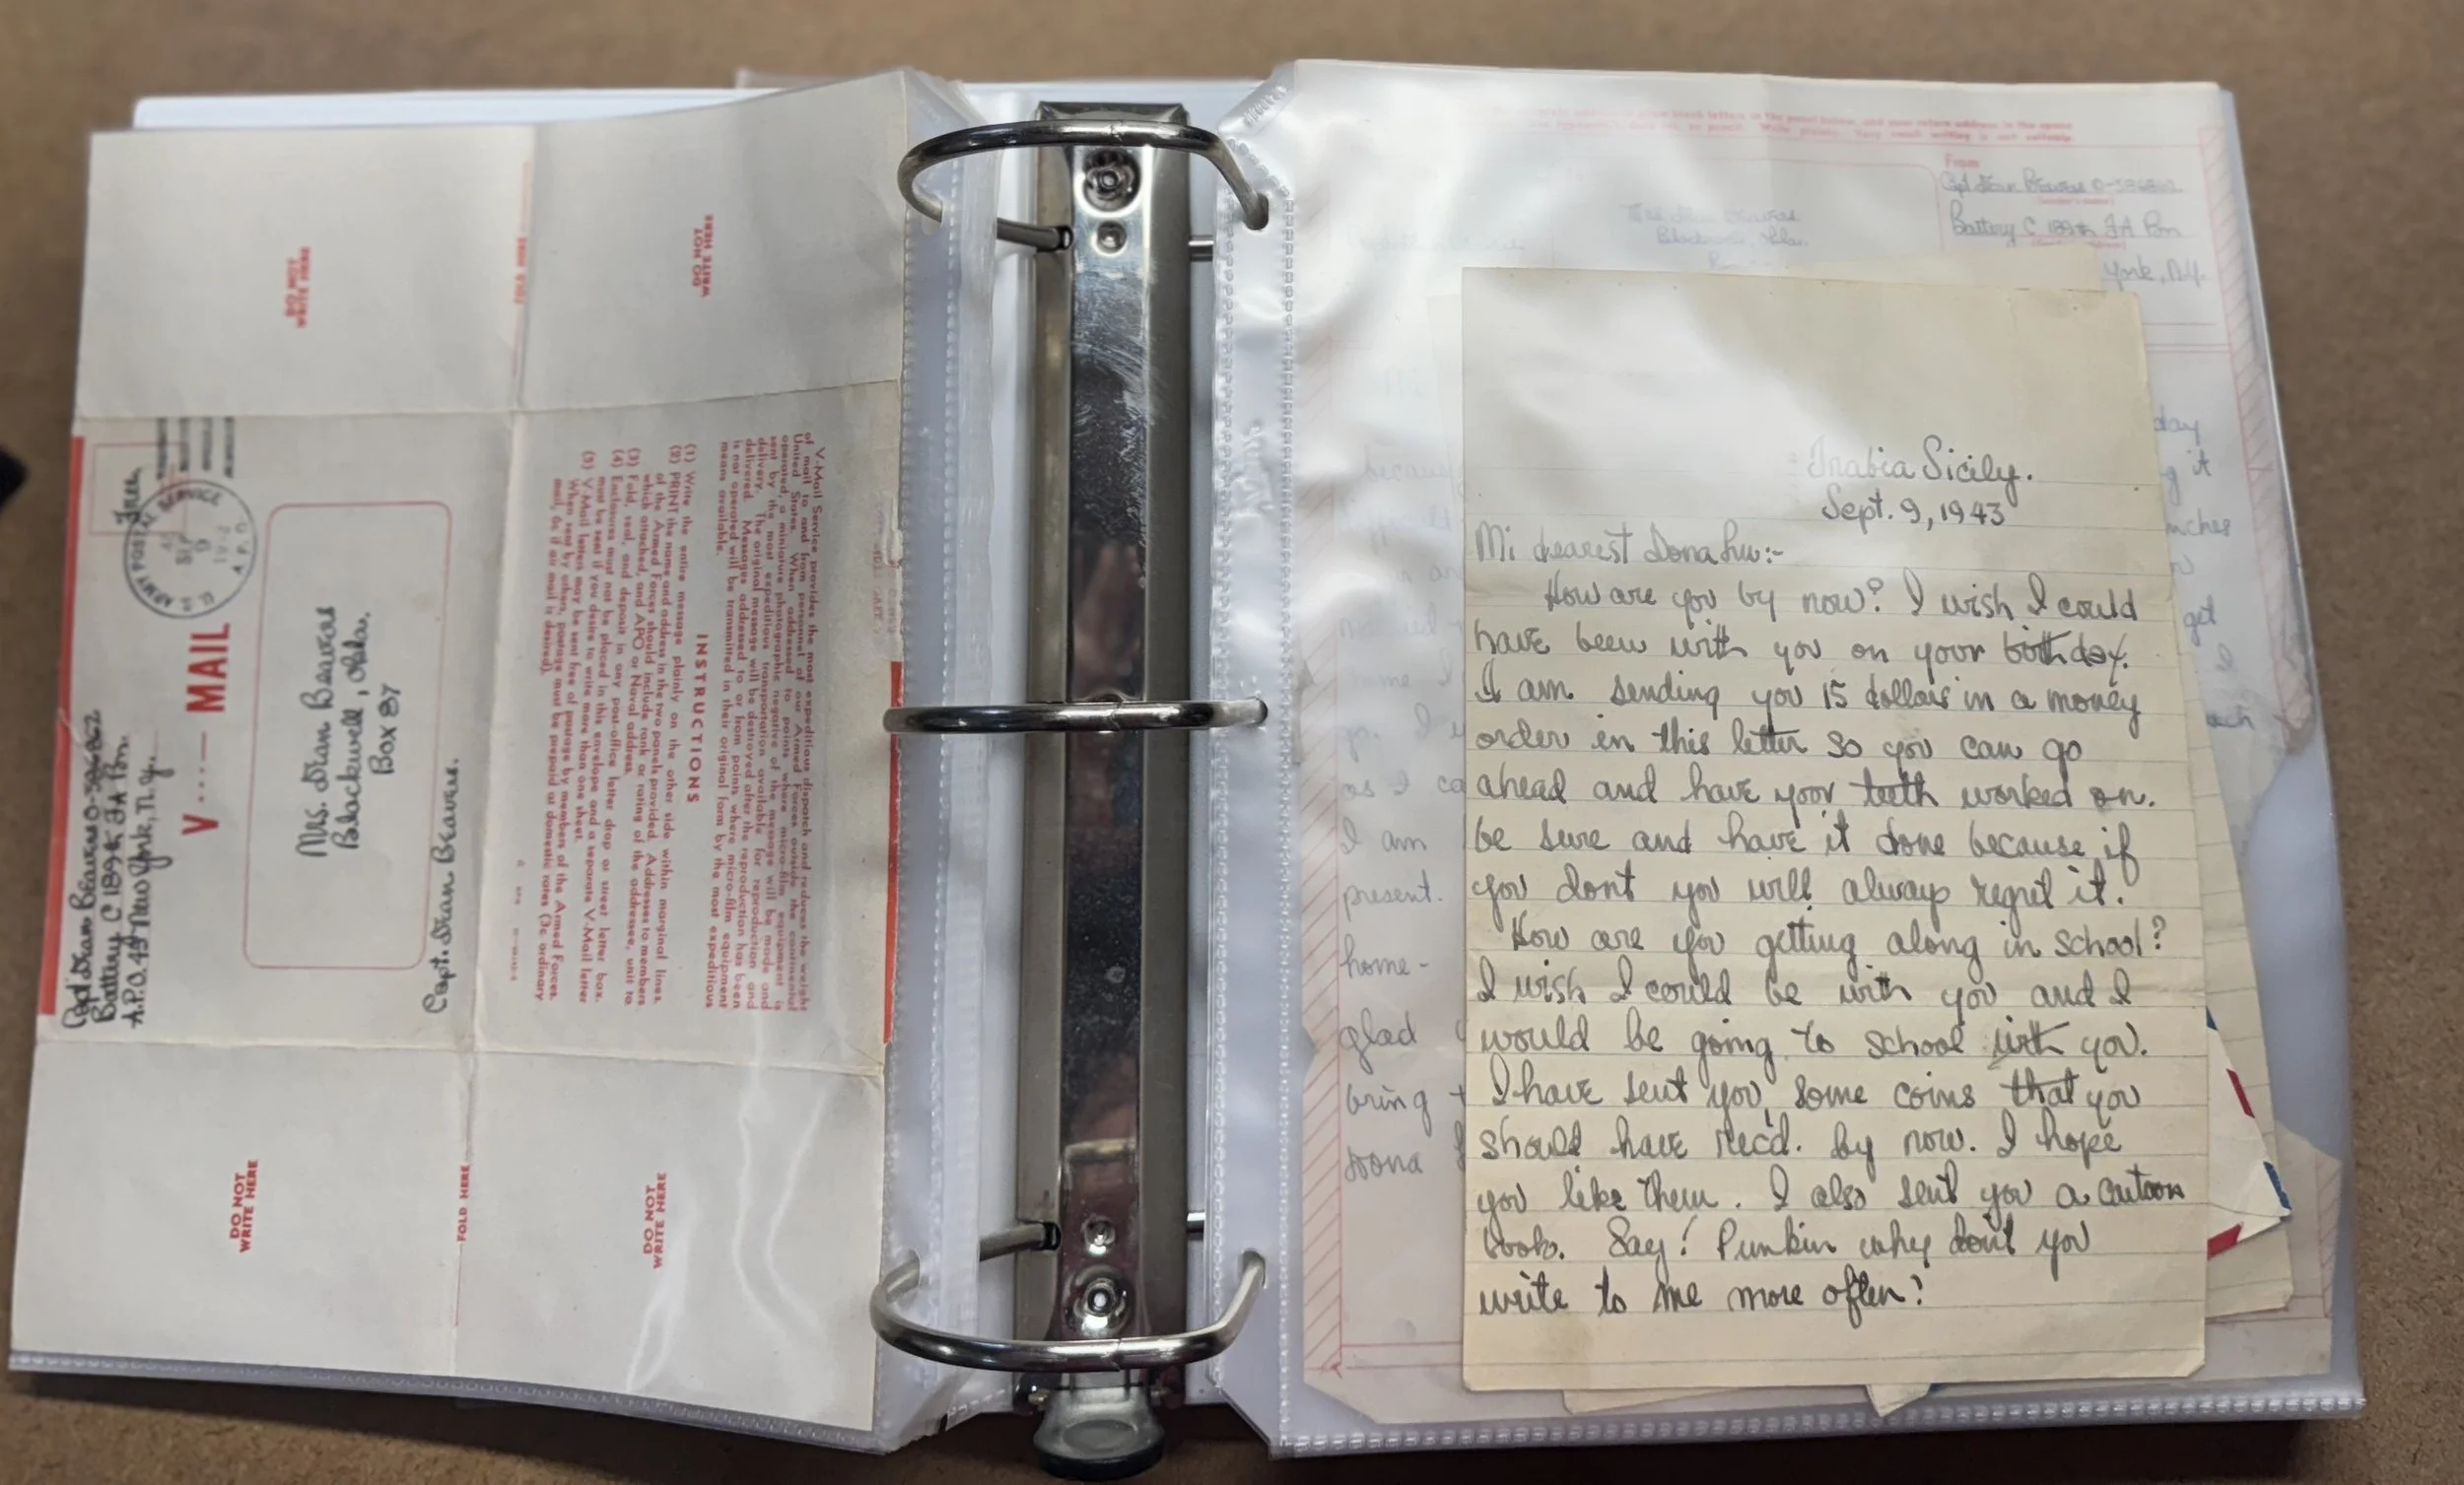 DO NOT
WRITE HERE
FOLD HERE
DO NOT
WRITE HERE
Free
ARMY POSTAL SERVICE
SEP
9
A.P.O.
Capt. Dean Beavers O-386862
Battery C 189th FA Bn.
A.P.O. 45 New York, N.Y.
V···—MAIL
Mrs. Dean Beavers
Blackwell, Okla.
Box 87
Capt. Dean Beavers.
V-Mail Service provides the most expeditious dispatch and reduces the weight
of mail to and from personnel of our Armed Forces outside the continental
United States. When addressed to points where micro-film equipment is
operated, a miniature photographic negative of the message will be made and
sent by the most expeditious transportation available for reproduction and
delivery. The original message will be destroyed after the reproduction has been
delivered. Messages addressed to or from points where micro-film equipment
is not operated will be transmitted in their original form by the most expeditious
means available.
INSTRUCTIONS
(1) Write the entire message plainly on the other side within marginal lines.
(2) PRINT the name and address in the two panels provided. Addresses to members
of the Armed Forces should include rank or rating of the addressee, unit to
which attached, and APO or Naval address.
(3) Fold, seal, and deposit in any post-office letter drop or street letter box.
(4) Enclosures must not be placed in this envelope and a separate V-Mail letter
must be sent if you desire to write more than one sheet.
(5) V-Mail letters may be sent free of postage by members of the Armed Forces.
When sent by others, postage must be prepaid at domestic rates (3c ordinary
mail, 6c if air mail is desired).
DO NOT
WRITE HERE
FOLD HERE
DO NOT
WRITE HERE
From
Capt Dean Beavers O-386862
Battery C 189th FA Bn
York, N.Y.
Mrs Dean Beavers
Blackwell, Okla.
Trabia Sicily.
Sept. 9, 1943
Mi dearest Dona Lu:-
How are you by now? I wish I could
have been with you on your birthday.
I am sending you 15 dollars in a money
order in this letter so you can go
ahead and have your teeth worked on.
be sure and have it done because if
you dont you will always regret it.
How are you getting along in school?
I wish I could be with you and I
would be going to school with you.
I have sent you some coins that you
should have rec'd. by now. I hope
you like them. I also sent you a cartoon
book. Say! Punkin why don't you
write to me more often?
day
it
get
as I ca
I am
present.
home-
glad
bring
Dona